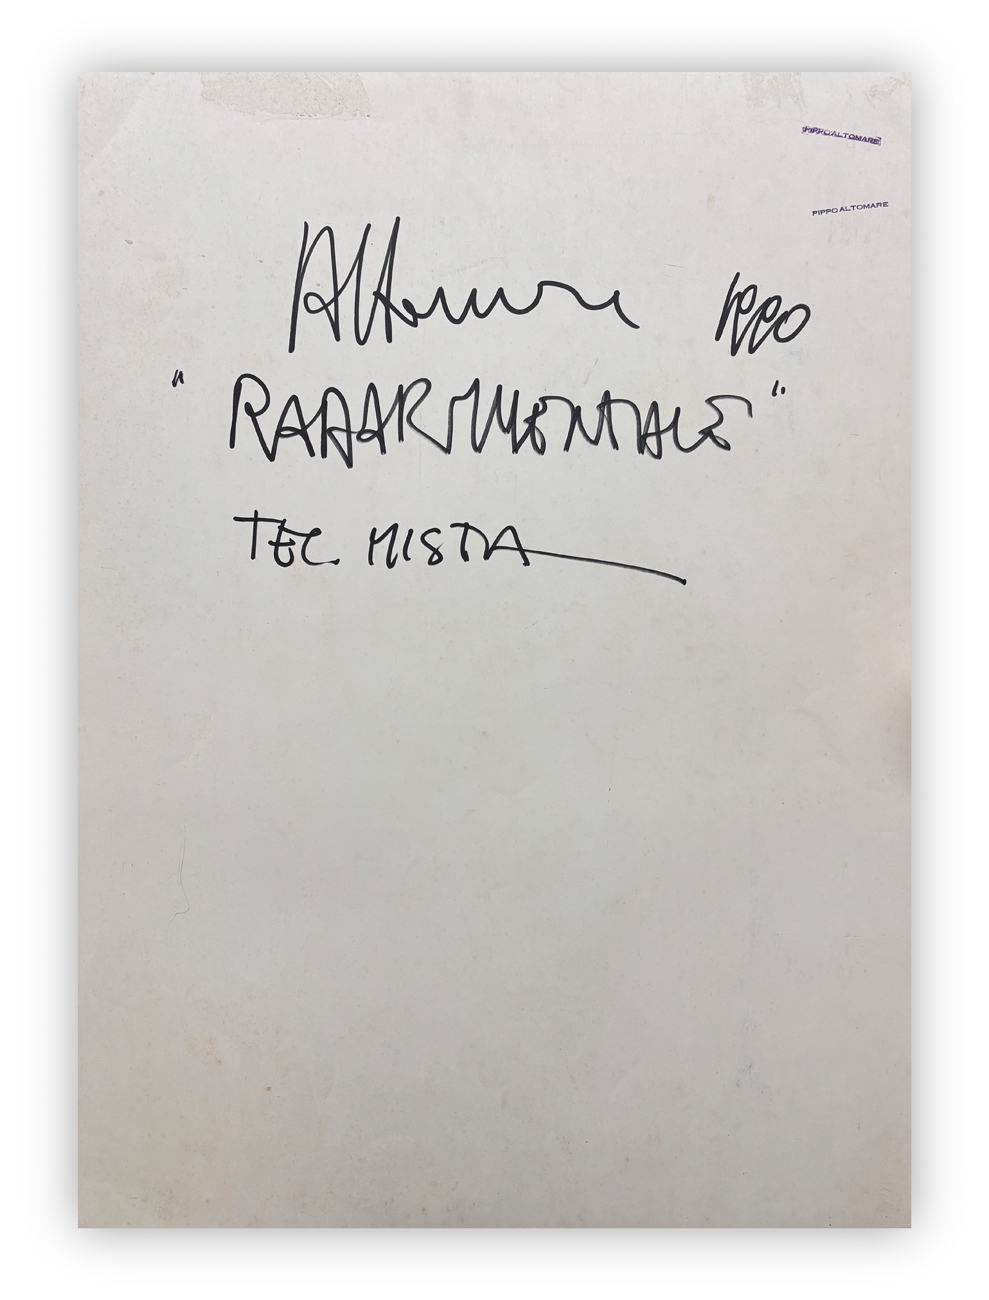 PIPPO ALTOMARE
PIPPO ALTOMARE
Altomare 1990
"RADAR MENTALE"
TEC MISTA